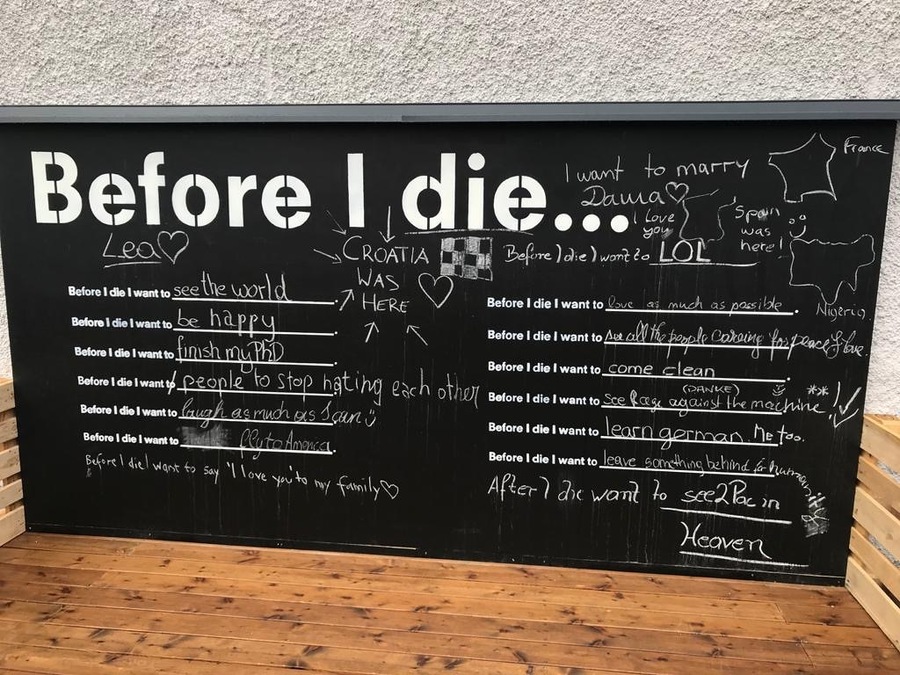 Before I die...
I want to marry
Dawa♡
France
I Love
you
Spain
was
here!
Lea♡
CROATIA
WAS
HERE
Before I die I want to LOL
Nigeria
Before I die I want to see the world.
Before I die I want to be happy.
Before I die I want to finish my PhD.
Before I die I want to people to stop hating each other
Before I die I want to laugh as much as I can :)
Before I die I want to fly to America.
Before I die I want to say "I love you" to my family♡
Before I die I want to love as much as possible.
Before I die I want to see all the people for peace & love.
Before I die I want to come clean.
(DANKE)
Before I die I want to see Rage against the machine.
Before I die I want to learn german. Me too.
Before I die I want to leave something behind for humanity
After I die want to see 2Pac in
Heaven